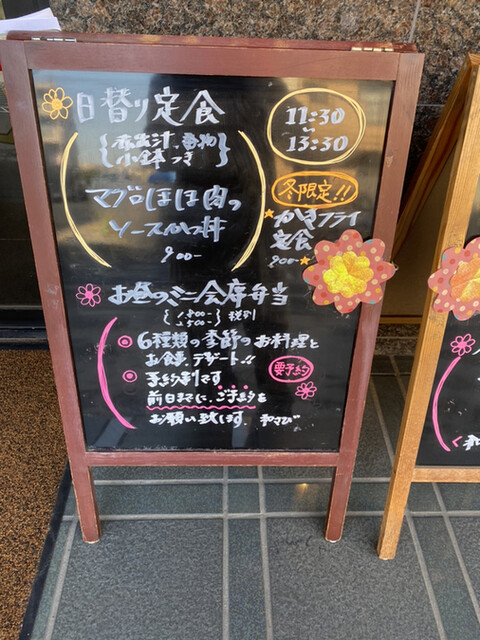 日替り定食
{味噌汁、香物
小鉢つき}
マグロほほ肉の
ソースかつ丼
900-
11:30
〜
13:30
冬限定!!
★かきフライ
定食
900-★
お昼のミニ会席弁当
{1,800-
2,500-} 税別
◎6種類の季節のお料理と
お食事、デザート!!
要予約
◎予約制です
前日までに、ご予約を
お願い致します。 和さび